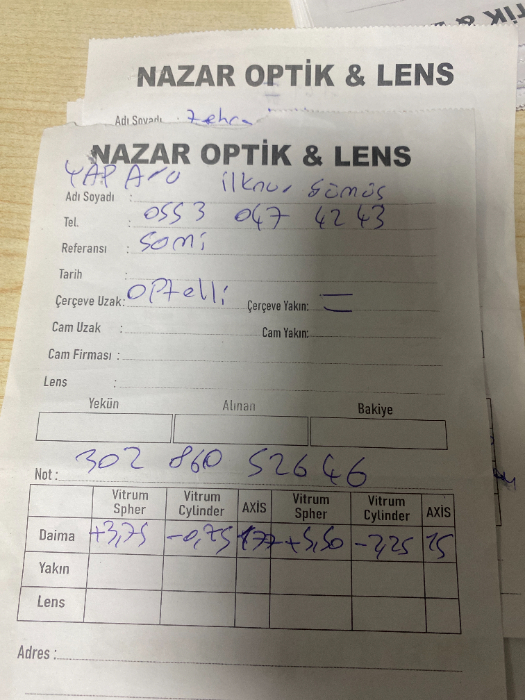 NAZAR OPTİK & LENS
Adı Soyadı : Zehra
NAZAR OPTİK & LENS
Adı Soyadı : İlknur Gümüş
Tel. : 0553 047 42 43
Referansı : Sami
Tarih :
Çerçeve Uzak: Optelli Çerçeve Yakın: =
Cam Uzak : Cam Yakın:
Cam Firması :
Lens :
Yekün Alınan Bakiye
Not : 302 860 526 46
Vitrum Spher Vitrum Cylinder AXİS Vitrum Spher Vitrum Cylinder AXİS
Daima +3,75 -0,75 177 +5,50 -2,25 15
Yakın
Lens
Adres :